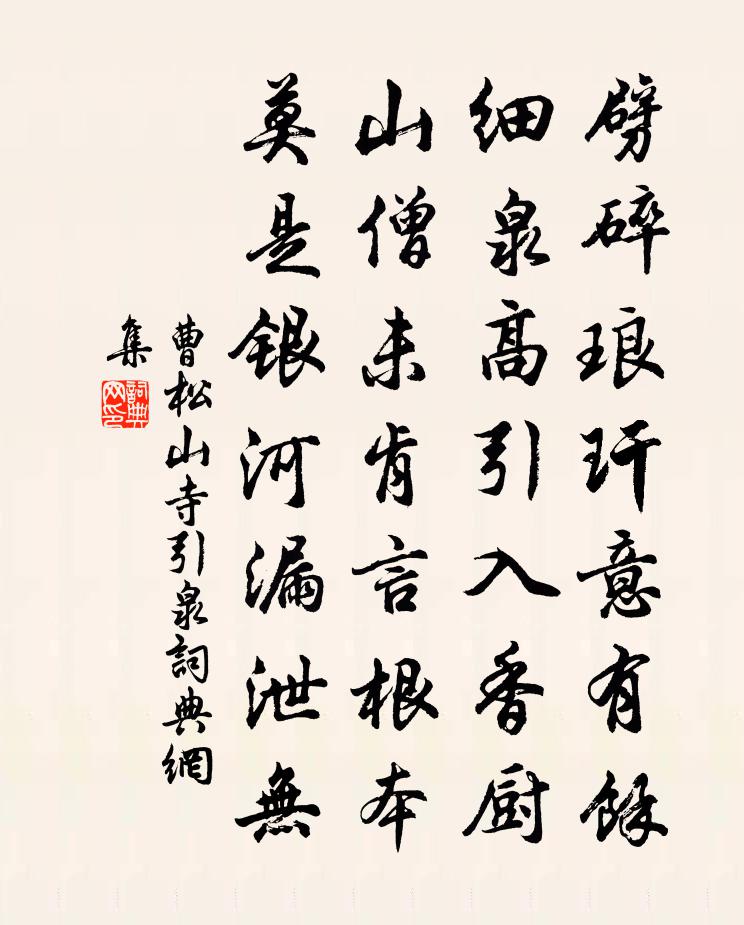 劈碎琅玕意有餘
細泉高引入香厨
山僧未肯言根本
莫是銀河漏泄無
曹松山寺引泉詞典網
集
詞典網印